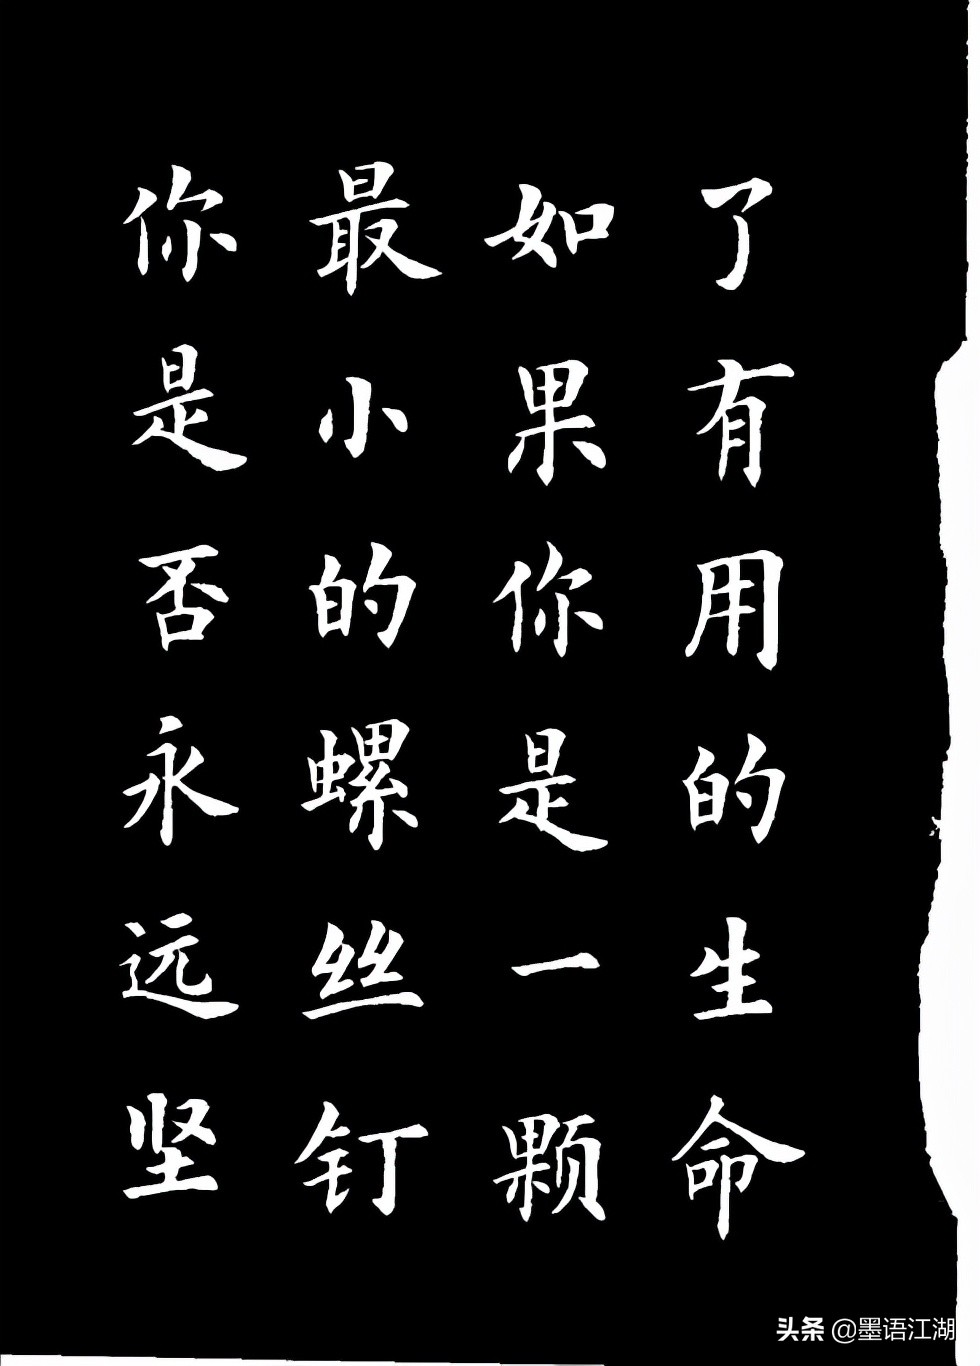 了有用的生命
如果你是一颗
最小的螺丝钉
你是否永远坚
头条 @墨语江湖